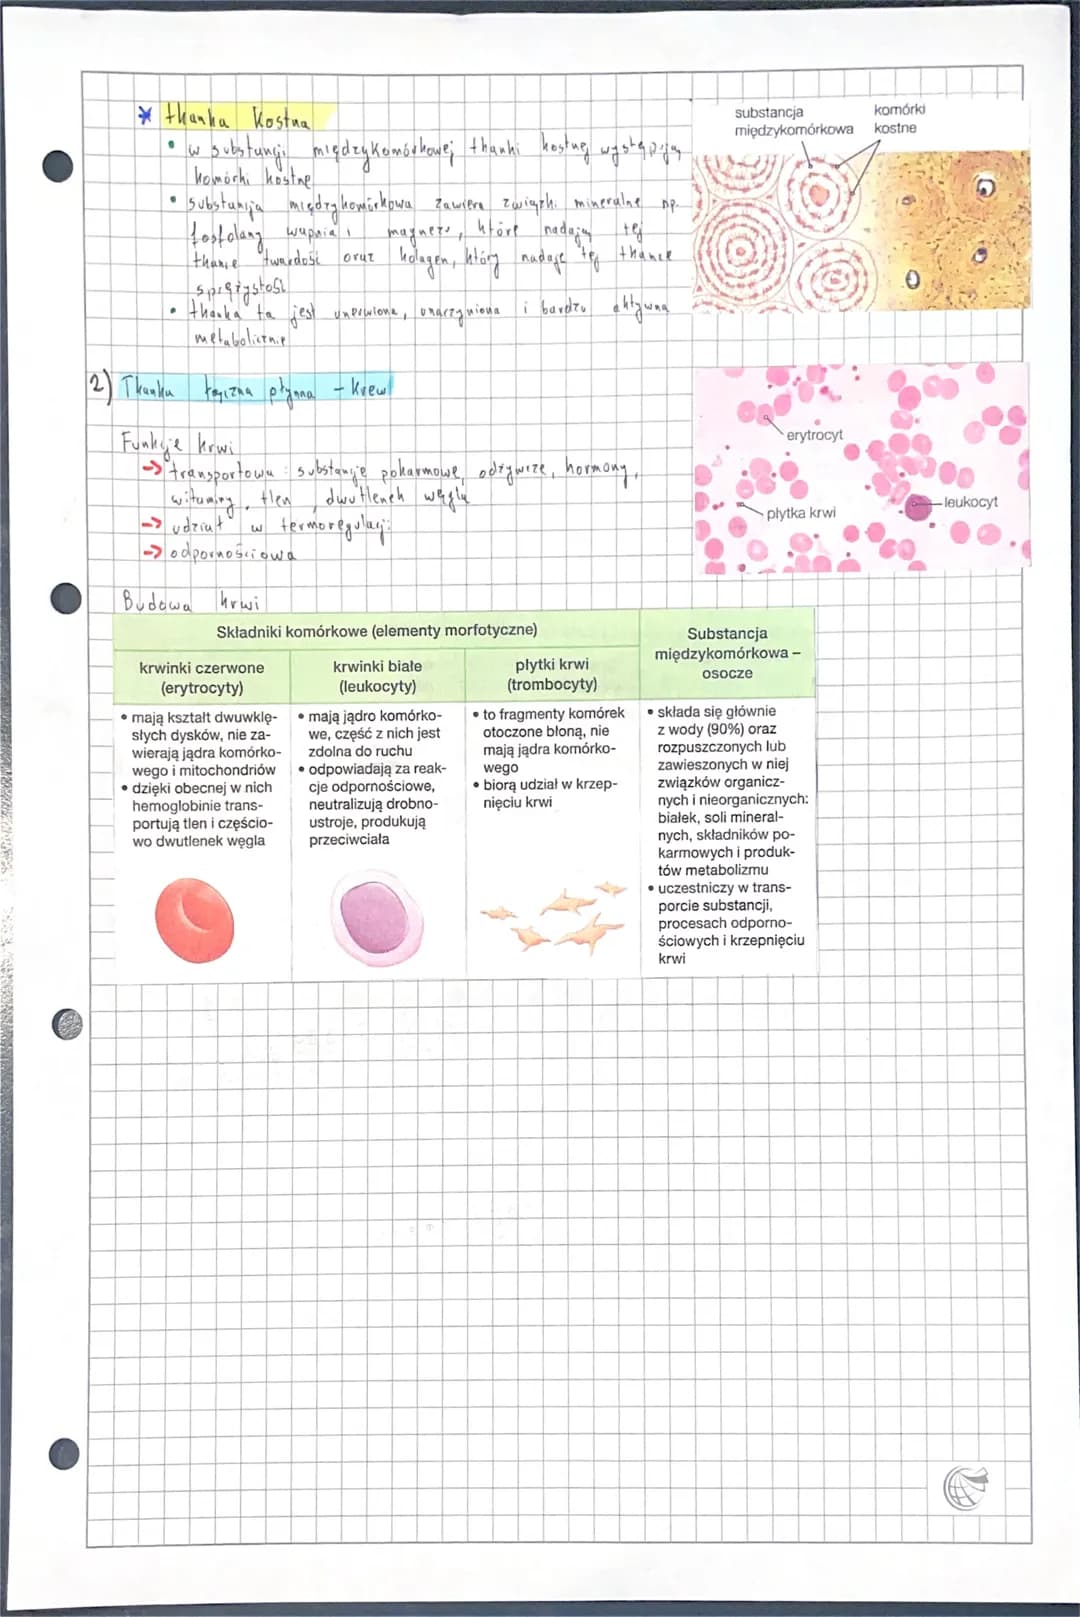 * tkanka kostna
• w substancji międzykomórkowej tkanki kostnej występują
komórki kostne
• substancja międzykomórkowa zawiera związki mineralne np.
fosfolany wapnia i magnezu, które nadają tej
tkance twardość oraz kolagen, który nadaje tej tkance
sprężystość
• tkanka ta jest unerwiona, unaczyniona i bardzo aktywna
metabolicznie
substancja
międzykomórkowa
komórki
kostne
2) Tkanka łączna płynna - krew
Funkcje krwi
→ transportowa: substancje pokarmowe, odżywcze, hormony,
witaminy, tlen, dwutlenek węgla
→ udział w termoregulacji
→ odpornościowa
erytrocyt
płytka krwi
leukocyt
Budowa krwi
Składniki komórkowe (elementy morfotyczne)
Substancja
międzykomórkowa –
osocze
krwinki czerwone
(erytrocyty)
krwinki białe
(leukocyty)
płytki krwi
(trombocyty)
• mają kształt dwuwklę-
słych dysków, nie za-
wierają jądra komórko-
wego i mitochondriów
• dzięki obecnej w nich
hemoglobinie trans-
portują tlen i częścio-
wo dwutlenek węgla
• mają jądro komórko-
we, część z nich jest
zdolna do ruchu
• odpowiadają za reak-
cje odpornościowe,
neutralizują drobno-
ustroje, produkują
przeciwciała
• to fragmenty komórek
otoczone błoną, nie
mają jądra komórko-
wego
• biorą udział w krzep-
nięciu krwi
• składa się głównie
z wody (90%) oraz
rozpuszczonych lub
zawieszonych w niej
związków organicz-
nych i nieorganicznych:
białek, soli mineral-
nych, składników po-
karmowych i produk-
tów metabolizmu
• uczestniczy w trans-
porcie substancji,
procesach odporno-
ściowych i krzepnięciu
krwi